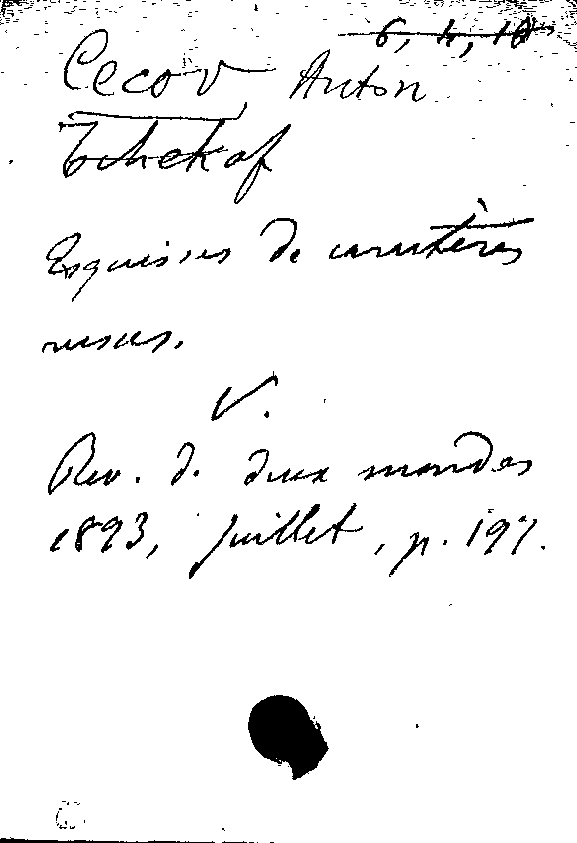 6, 4, 10
Cecov, Anton
Tchekof
Esquisses de caractères
russes.
V.
Rev. d. deux mondes
1893, juillet, p. 197.